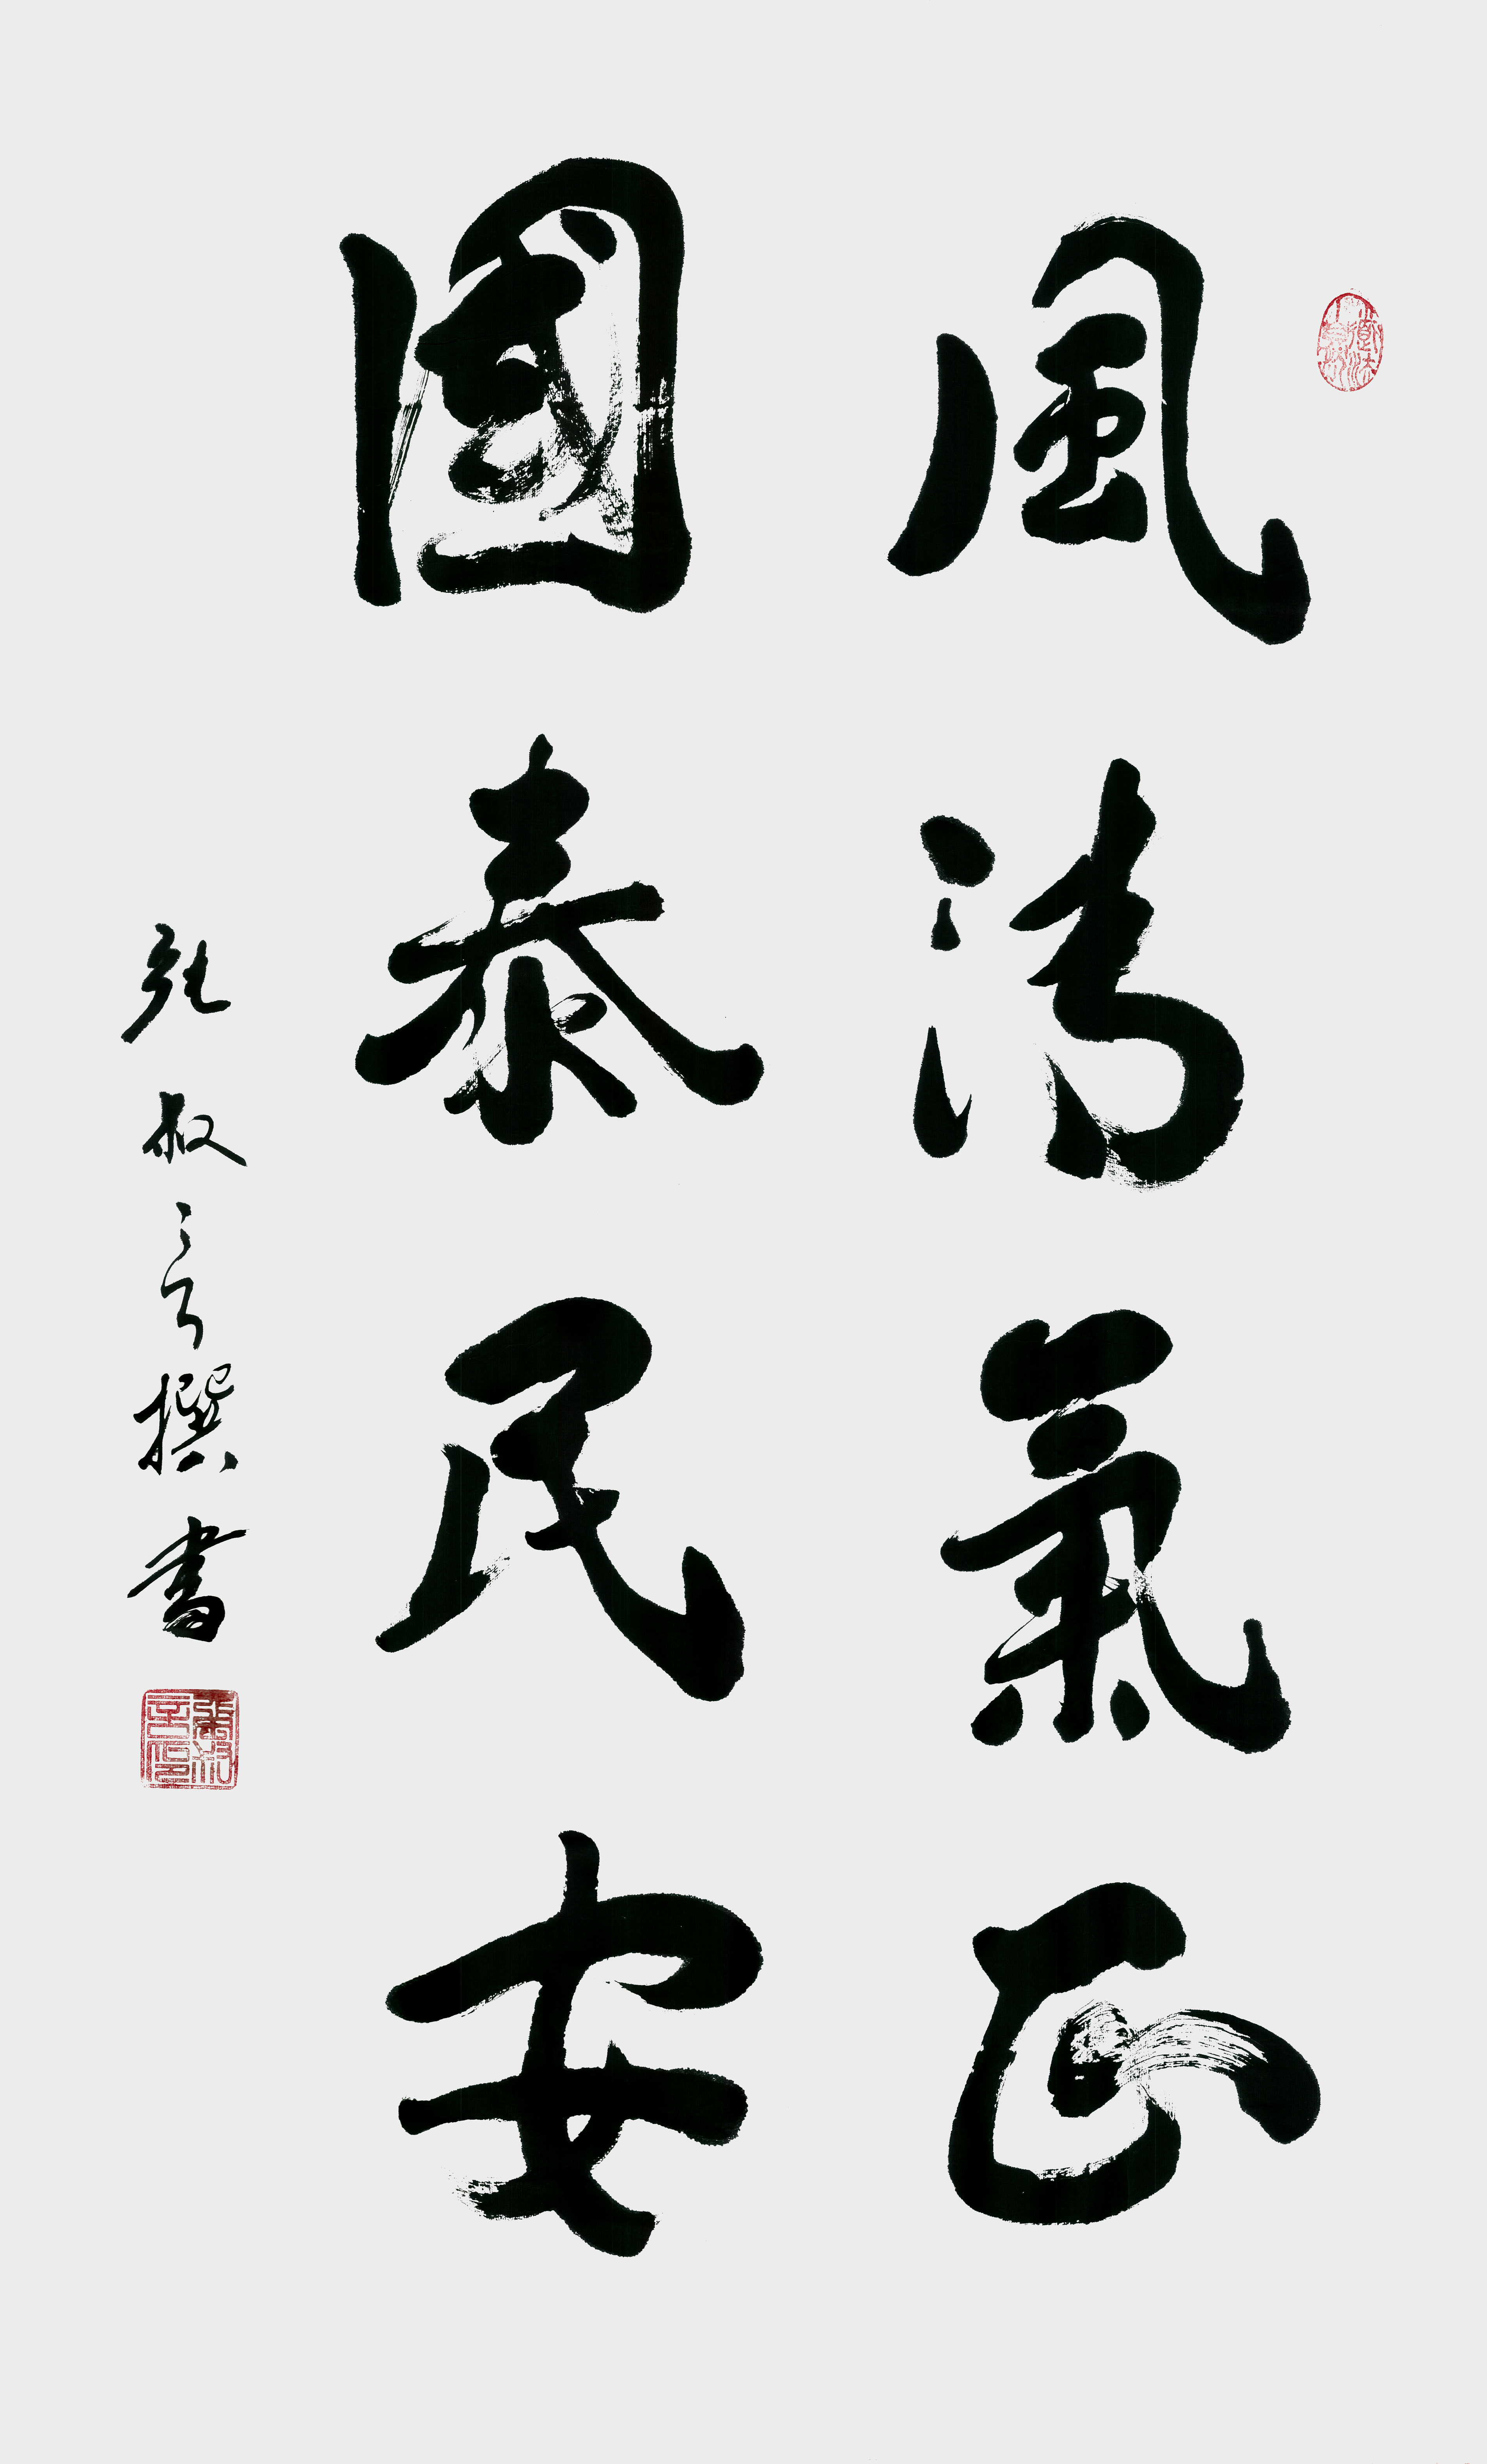 風清氣正
國泰民安
叔言撰書